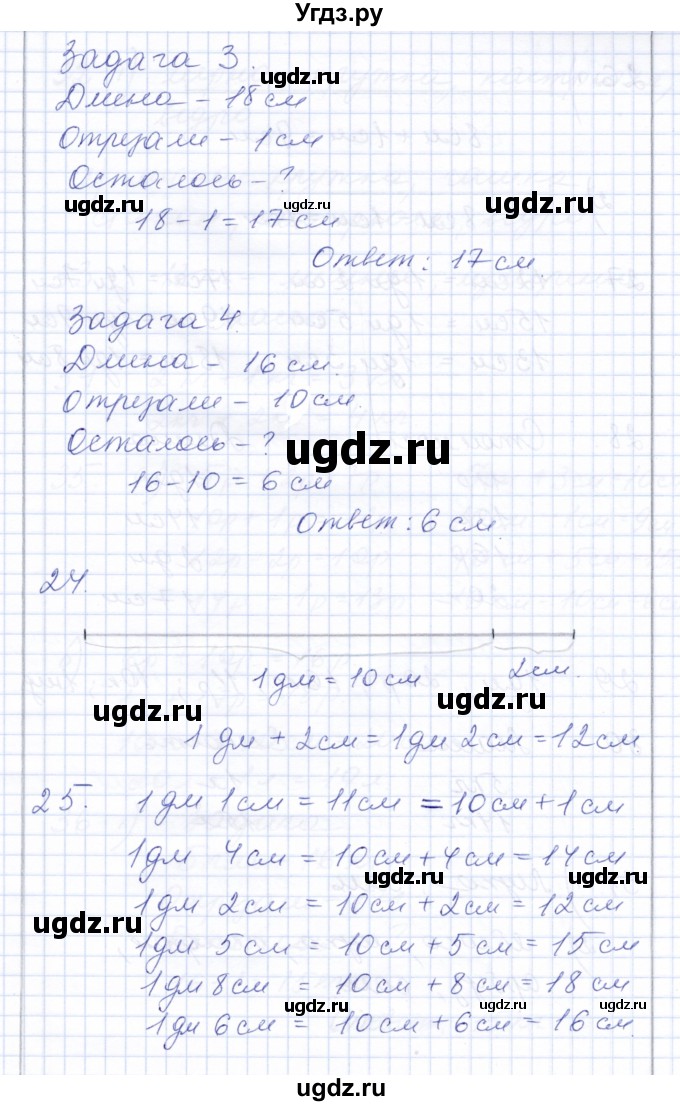 Угдз.ру
Задача 3.
ugdz.ru
Длина – 18 см
Отрезали – 1 см
ugdz.ru
Осталось – ?
ugdz.ru ugdz.ru ugdz.ru
18 – 1 = 17 см
Ответ: 17 см.
Задача 4.
Длина – 16 см.
Отрезали – 10 см.
Осталось – ?
ugdz.ru
16 – 10 = 6 см
Ответ: 6 см.
24.
1 дм = 10 см 2 см.
ugdz.ru ugdz.ru
1 дм + 2 см = 1 дм 2 см = 12 см.
25. 1 дм 1 см = 11 см = 10 см + 1 см
1 дм 4 см = 10 см + 4 см = 14 см
ugdz.ru ugdz.ru
1 дм 2 см = 10 см + 2 см = 12 см
ugdz.ru
1 дм 5 см = 10 см + 5 см = 15 см
1 дм 8 см = 10 см + 8 см = 18 см
ugdz.ru ugdz.ru
1 дм 6 см = 10 см + 6 см = 16 см.
ugdz.ru